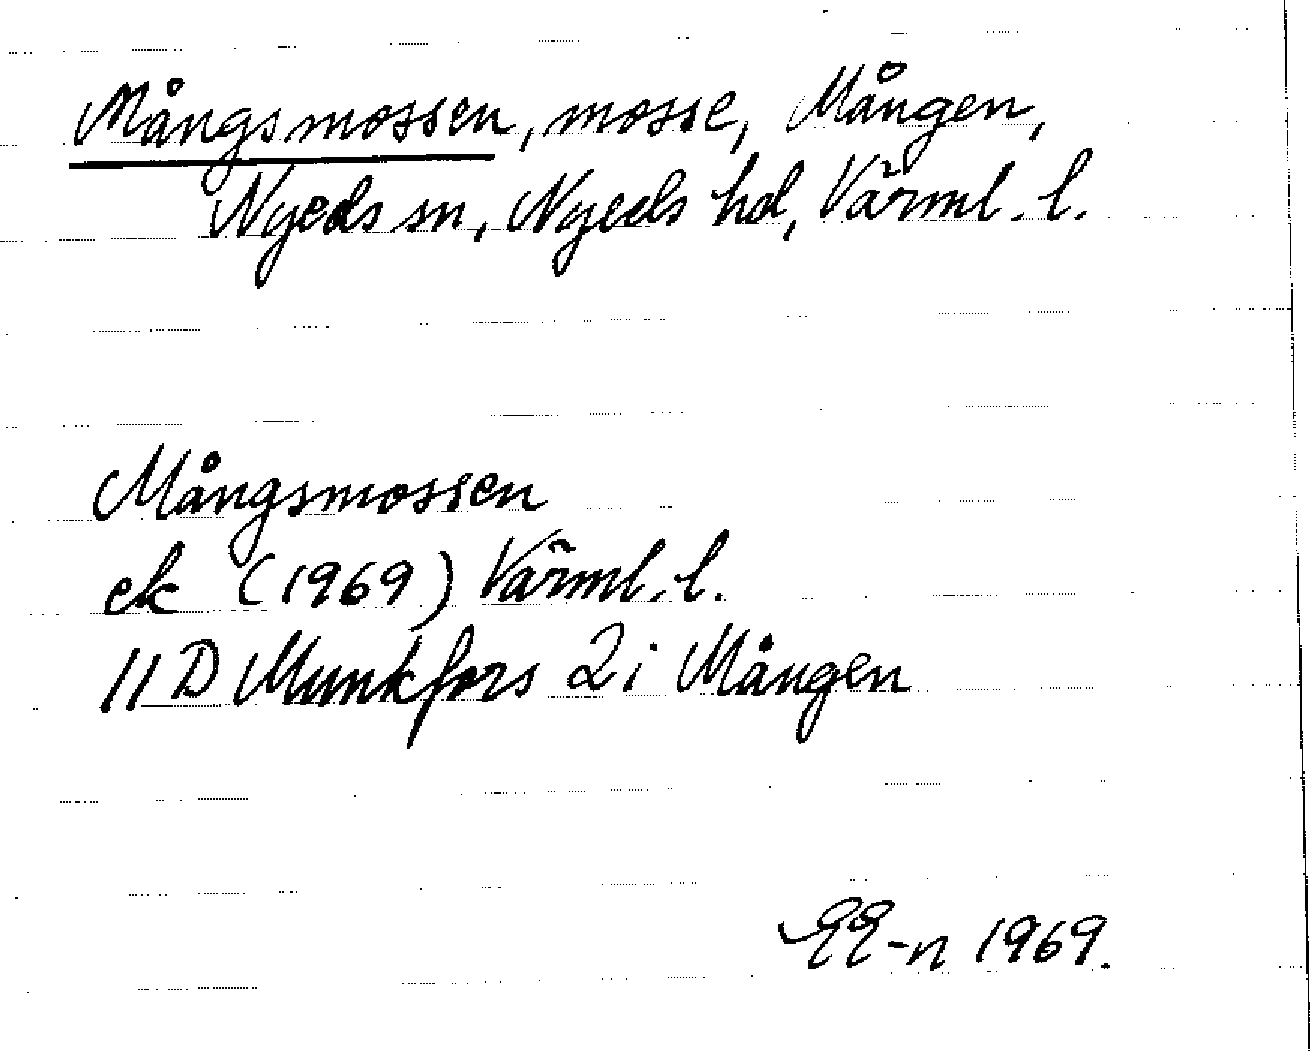 Mångsmossen, mosse, Mången,
Nyeds sn, Nyeds hd, Värml. l.
Mångsmossen
ek (1969) Värml. l.
11 D Munkfors 2 i Mången
EE-n 1969.